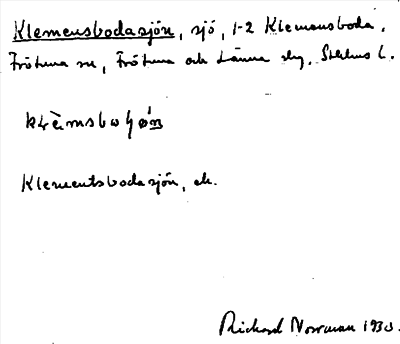 Klemensbodasjön, sjö, 1-2 Klemensboda.
Frötuna sn, Frötuna och Länna skg, Sthlms l.
Klementsbodasjön, ek.
Richard Norrman 1930.